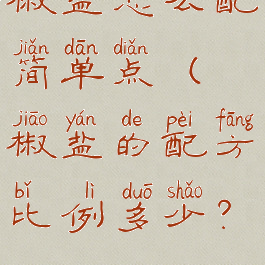 椒盐怎么配
jiǎn dān diǎn
简单点(
jiāo yán de pèi fāng
椒盐的配方
bǐ lì duō shǎo
比例多少?